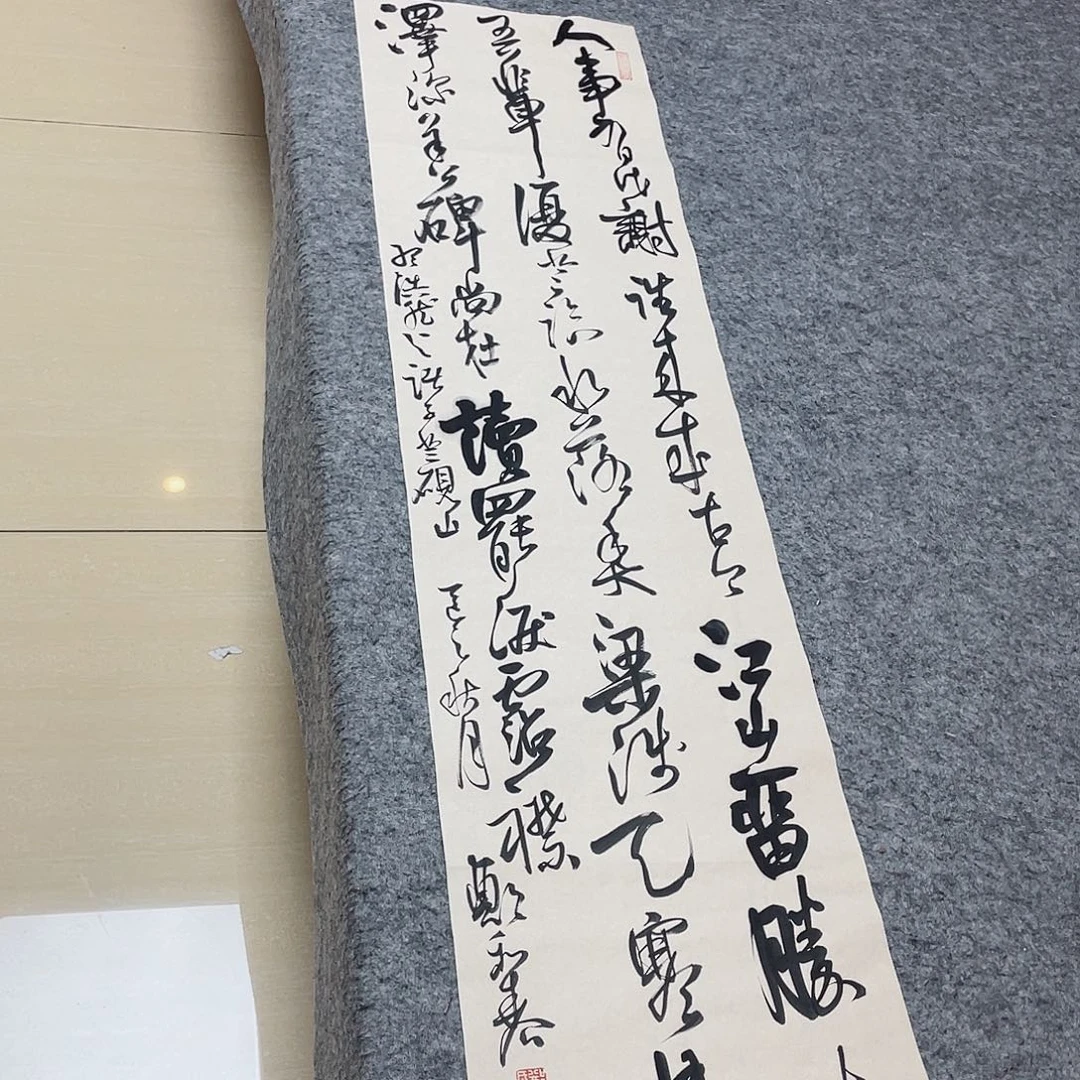 人事有代謝往來成古今江山留勝
吾輩復登臨水落魚梁淺天寒
澤深羊公碑尚在讀罷淚霑襟
孟浩然与諸子登硯山
秋月